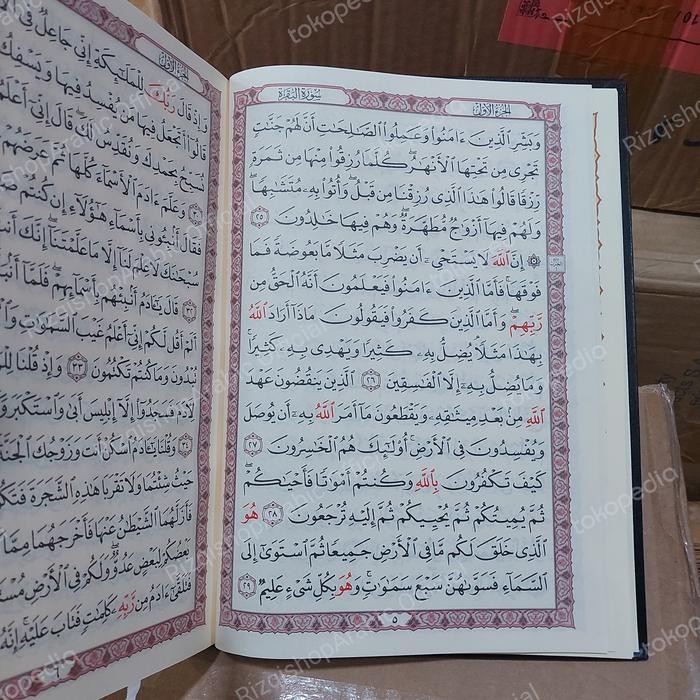 الجزء الأول
سورة البقرة
وَبَشِّرِ ٱلَّذِينَ ءَامَنُوا۟ وَعَمِلُوا۟ ٱلصَّٰلِحَٰتِ أَنَّ لَهُمْ جَنَّٰتٍ
تَجْرِى مِن تَحْتِهَا ٱلْأَنْهَٰرُ ۖ كُلَّمَا رُزِقُوا۟ مِنْهَا مِن ثَمَرَةٍ
رِّزْقًا قَالُوا۟ هَٰذَا ٱلَّذِى رُزِقْنَا مِن قَبْلُ ۖ وَأُتُوا۟ بِهِۦ مُتَشَٰبِهًا ۖ
وَلَهُمْ فِيهَآ أَزْوَٰجٌ مُّطَهَّرَةٌ ۖ وَهُمْ فِيهَا خَٰلِدُونَ ٢٥
۞ إِنَّ ٱللَّهَ لَا يَسْتَحْىِۦٓ أَن يَضْرِبَ مَثَلًا مَّا بَعُوضَةً فَمَا
فَوْقَهَا ۚ فَأَمَّا ٱلَّذِينَ ءَامَنُوا۟ فَيَعْلَمُونَ أَنَّهُ ٱلْحَقُّ مِن
رَّبِّهِمْ ۖ وَأَمَّا ٱلَّذِينَ كَفَرُوا۟ فَيَقُولُونَ مَاذَآ أَرَادَ ٱللَّهُ
بِهَٰذَا مَثَلًا ۘ يُضِلُّ بِهِۦ كَثِيرًا وَيَهْدِى بِهِۦ كَثِيرًا ۚ
وَمَا يُضِلُّ بِهِۦٓ إِلَّا ٱلْفَٰسِقِينَ ٢٦ ٱلَّذِينَ يَنقُضُونَ عَهْدَ
ٱللَّهِ مِنۢ بَعْدِ مِيثَٰقِهِۦ وَيَقْطَعُونَ مَآ أَمَرَ ٱللَّهُ بِهِۦٓ أَن يُوصَلَ
وَيُفْسِدُونَ فِى ٱلْأَرْضِ ۚ أُو۟لَٰٓئِكَ هُمُ ٱلْخَٰسِرُونَ ٢٧
كَيْفَ تَكْفُرُونَ بِٱللَّهِ وَكُنتُمْ أَمْوَٰتًا فَأَحْيَٰكُمْ ۖ
ثُمَّ يُمِيتُكُمْ ثُمَّ يُحْيِيكُمْ ثُمَّ إِلَيْهِ تُرْجَعُونَ ٢٨ هُوَ
ٱلَّذِى خَلَقَ لَكُم مَّا فِى ٱلْأَرْضِ جَمِيعًا ثُمَّ ٱسْتَوَىٰٓ إِلَى
ٱلسَّمَآءِ فَسَوَّىٰهُنَّ سَبْعَ سَمَٰوَٰتٍ ۚ وَهُوَ بِكُلِّ شَىْءٍ عَلِيمٌ ٢٩
٥
الجزء الأول
وَإِذْ قَالَ رَبُّكَ لِلْمَلَٰٓئِكَةِ إِنِّى جَاعِلٌ فِى
قَالُوٓا۟ أَتَجْعَلُ فِيهَا مَن يُفْسِدُ فِيهَا وَيَسْفِكُ
نُسَبِّحُ بِحَمْدِكَ وَنُقَدِّسُ لَكَ ۖ قَالَ إِنِّىٓ أَعْلَمُ
٣٠ وَعَلَّمَ ءَادَمَ ٱلْأَسْمَآءَ كُلَّهَا ثُمَّ عَرَضَهُمْ
فَقَالَ أَنۢبِـُٔونِى بِأَسْمَآءِ هَٰٓؤُلَآءِ إِن كُنتُمْ
سُبْحَٰنَكَ لَا عِلْمَ لَنَآ إِلَّا مَا عَلَّمْتَنَآ ۖ إِنَّكَ
٣٢ قَالَ يَٰٓـَٔادَمُ أَنۢبِئْهُم بِأَسْمَآئِهِمْ ۖ فَلَمَّآ
أَلَمْ أَقُل لَّكُمْ إِنِّىٓ أَعْلَمُ غَيْبَ ٱلسَّمَٰوَٰتِ
تُبْدُونَ وَمَا كُنتُمْ تَكْتُمُونَ ٣٣ وَإِذْ قُلْنَا
لِـَٔادَمَ فَسَجَدُوٓا۟ إِلَّآ إِبْلِيسَ أَبَىٰ وَٱسْتَكْبَرَ
٣٤ وَقُلْنَا يَٰٓـَٔادَمُ ٱسْكُنْ أَنتَ وَزَوْجُكَ ٱلْجَنَّةَ
حَيْثُ شِئْتُمَا وَلَا تَقْرَبَا هَٰذِهِ ٱلشَّجَرَةَ
فَأَزَلَّهُمَا ٱلشَّيْطَٰنُ عَنْهَا فَأَخْرَجَهُمَا مِمَّا
بَعْضُكُمْ لِبَعْضٍ عَدُوٌّ ۖ وَلَكُمْ فِى ٱلْأَرْضِ
فَتَلَقَّىٰٓ ءَادَمُ مِن رَّبِّهِۦ كَلِمَٰتٍ فَتَابَ عَلَيْهِ ۚ إِنَّهُۥ
٦
RizqishopArabic Official
tokopedia